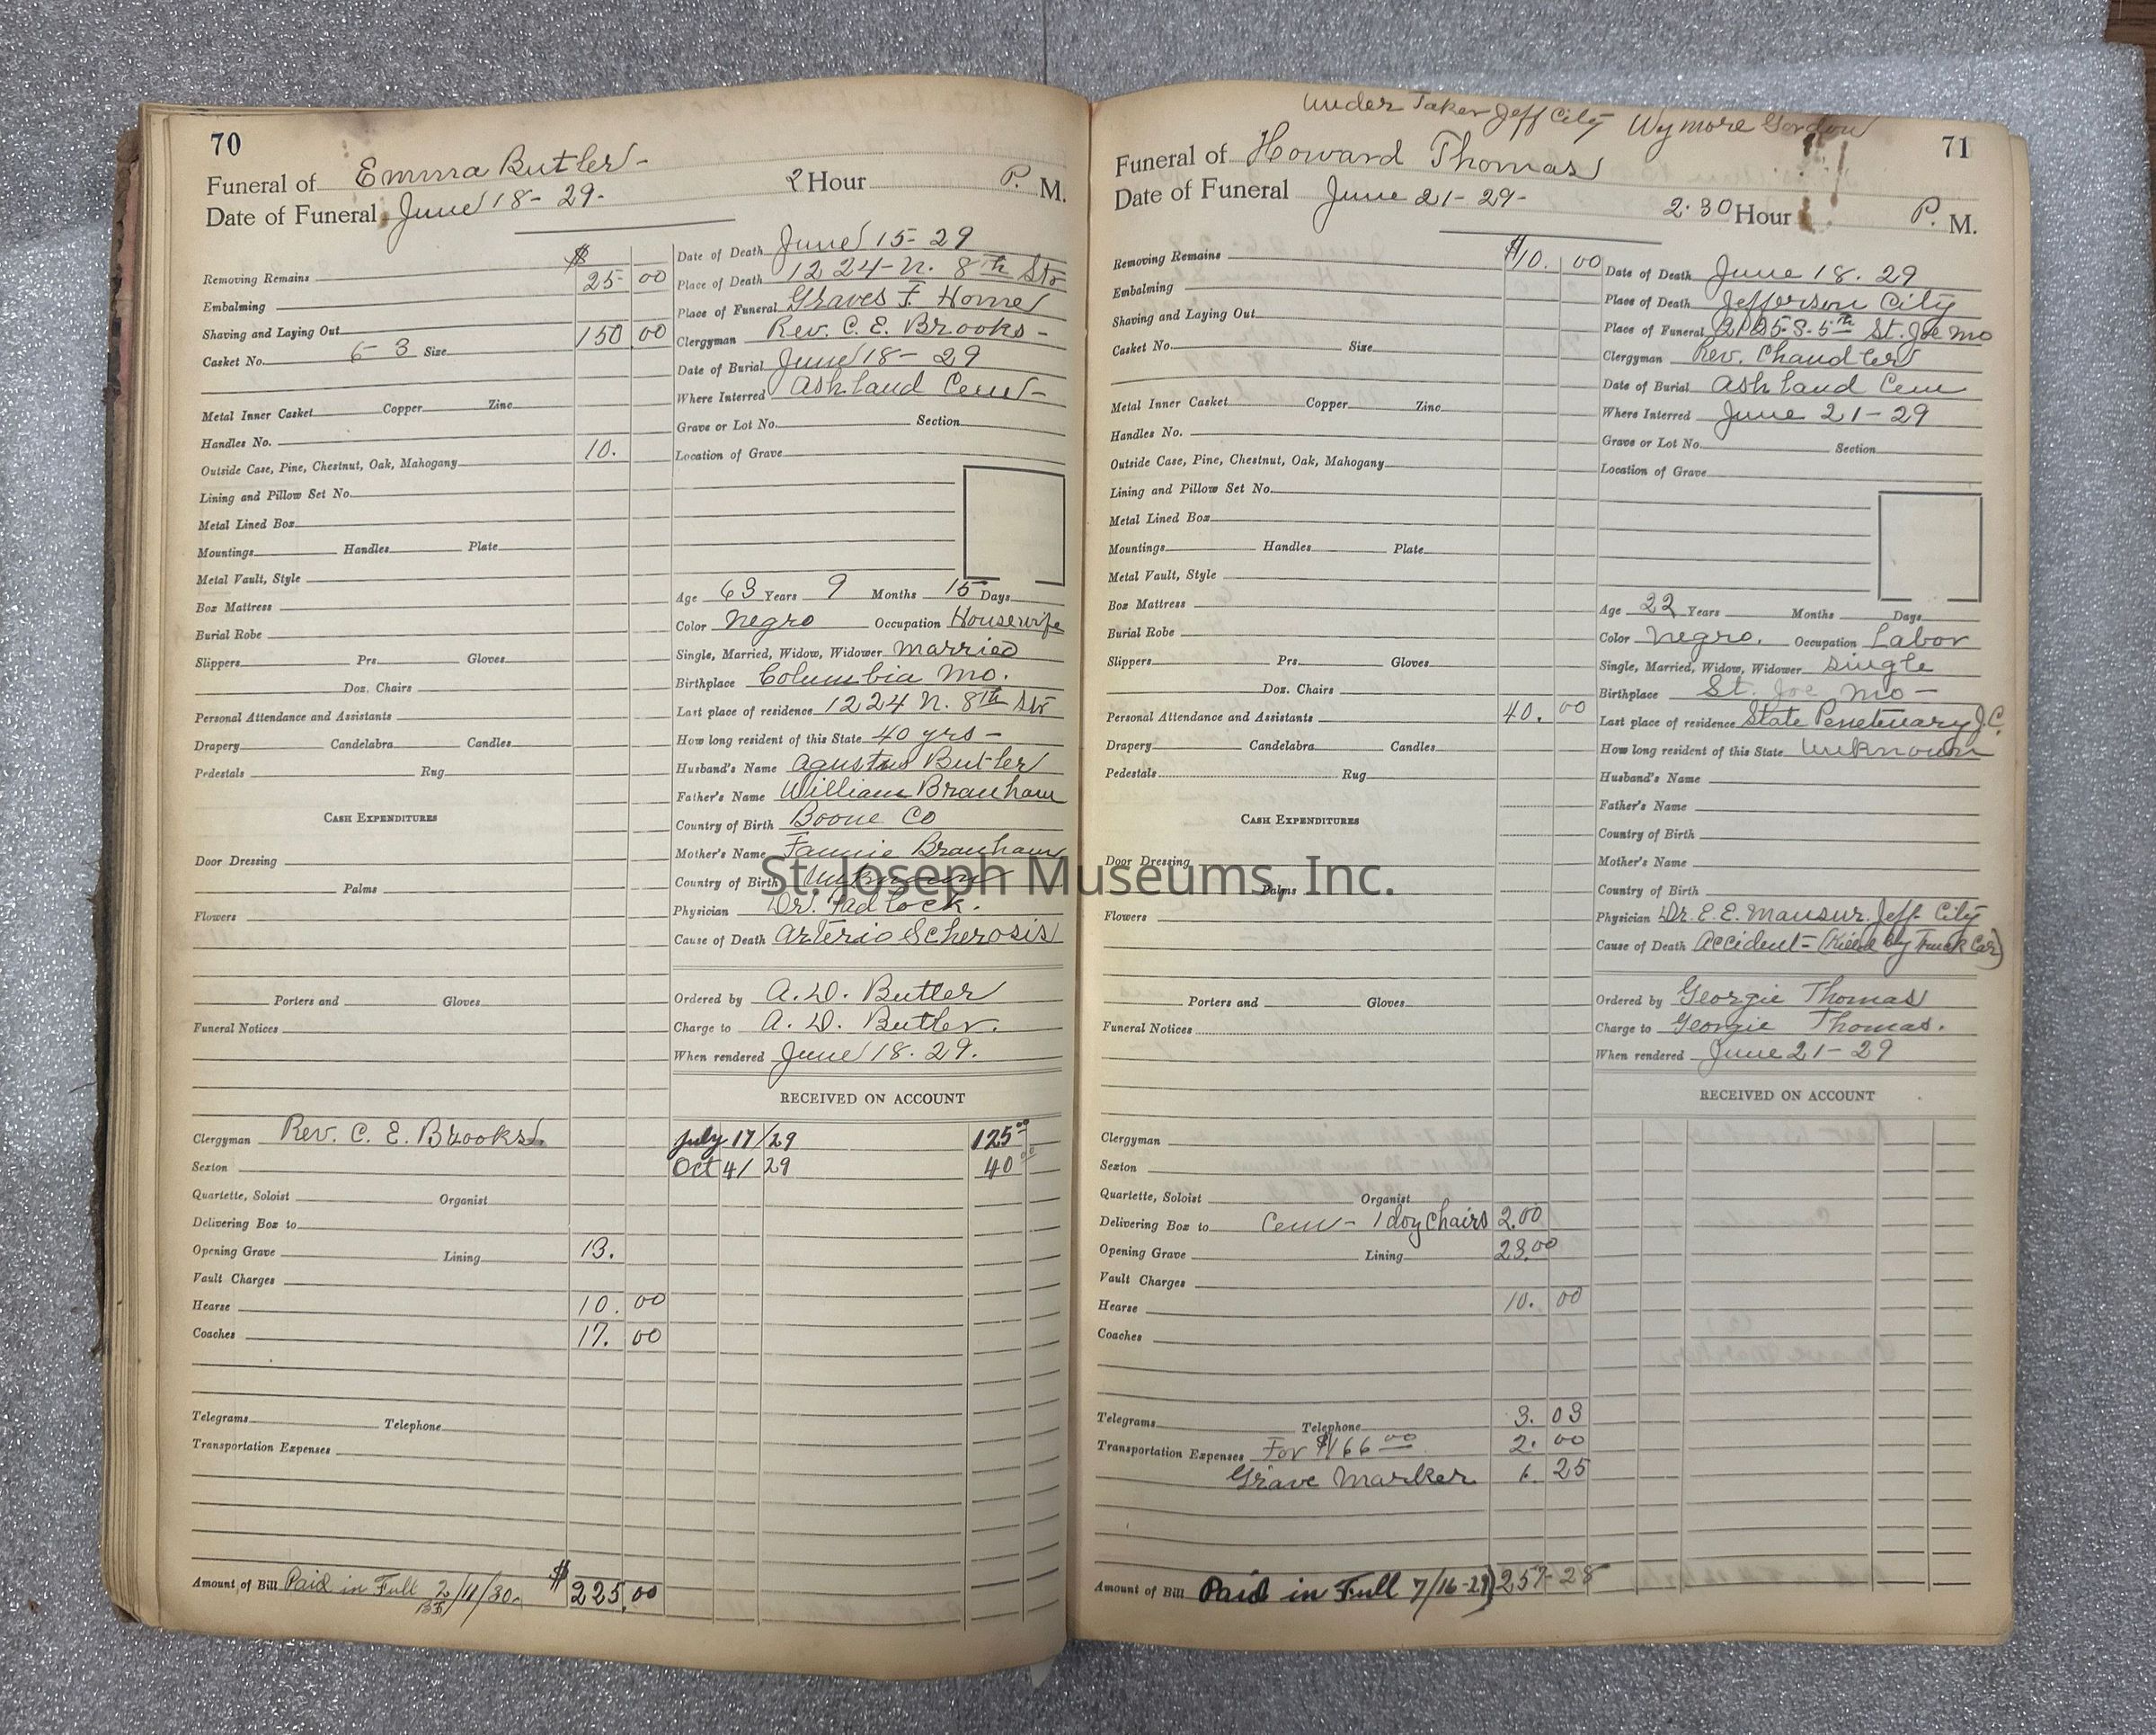 70
Funeral of Emma Butler-
Date of Funeral June 18- 29. 2 Hour P. M.
$
Removing Remains 25- 00
Embalming
Shaving and Laying Out 150 00
Casket No. 6-3 Size
Metal Inner Casket Copper Zinc
Handles No.
Outside Case, Pine, Chestnut, Oak, Mahogany 10.
Lining and Pillow Set No.
Metal Lined Box
Mountings Handles Plate
Metal Vault, Style
Box Mattress
Burial Robe
Slippers Prs. Gloves
Doz. Chairs
Personal Attendance and Assistants
Drapery Candelabra Candles
Pedestals Rug
CASH EXPENDITURES
Door Dressing
Palms
Flowers
Porters and Gloves
Funeral Notices
Clergyman Rev. C. E. Brooks.
Sexton
Quartette, Soloist Organist
Delivering Box to
Opening Grave Lining 13.
Vault Charges
Hearse 10. 00
Coaches 17. 00
Telegrams Telephone
Transportation Expenses
Amount of Bill Paid in Full 2/11/30. $225.00
Date of Death June 15- 29
Place of Death 1224-N. 8th Str
Place of Funeral Graves F. Home
Clergyman Rev. C. E. Brooks-
Date of Burial June 18- 29
Where Interred Ashland Cem-
Grave or Lot No. Section
Location of Grave
Age 63 Years 9 Months 15 Days
Color Negro Occupation Housewife
Single, Married, Widow, Widower Married
Birthplace Columbia Mo.
Last place of residence 1224 N. 8th Str
How long resident of this State 40 yrs-
Husband's Name Agustus Butler
Father's Name William Branham
Country of Birth Boone Co
Mother's Name Fannie Branham
Country of Birth
Physician Dr. Tadlock.
Cause of Death Arterio Scherosis
Ordered by A. D. Butler
Charge to A. D. Butler.
When rendered June 18. 29.
RECEIVED ON ACCOUNT
July 17/29 125 00
Oct 4/29 40 00
Under Taker Jeff City Wymore Gordon
71
Funeral of Howard Thomas
Date of Funeral June 21- 29- 2.30 Hour P. M.
Removing Remains $10. 00
Embalming
Shaving and Laying Out
Casket No. Size
Metal Inner Casket Copper Zinc
Handles No.
Outside Case, Pine, Chestnut, Oak, Mahogany
Lining and Pillow Set No.
Metal Lined Box
Mountings Handles Plate
Metal Vault, Style
Box Mattress
Burial Robe
Slippers Prs. Gloves
Doz. Chairs
Personal Attendance and Assistants 40. 00
Drapery Candelabra Candles
Pedestals Rug
CASH EXPENDITURES
Door Dressing
Palms
Flowers
Porters and Gloves
Funeral Notices
Clergyman
Sexton
Quartette, Soloist Organist
Delivering Box to Cem- 1 doz Chairs 2.00
Opening Grave Lining 23.00
Vault Charges
Hearse 10. 00
Coaches
Telegrams Telephone 3. 03
Transportation Expenses For $166 00 2. 00
Grave Marker 1. 25
Amount of Bill Paid in Full 7/16-29) 257-28
Date of Death June 18. 29
Place of Death Jefferson City
Place of Funeral 2125-S-5th St. Joe Mo
Clergyman Rev. Chandler
Date of Burial Ashland Cem
Where Interred June 21-29
Grave or Lot No. Section
Location of Grave
Age 22 Years Months Days
Color Negro. Occupation Labor
Single, Married, Widow, Widower Single
Birthplace St. Joe Mo-
Last place of residence State Penetuary J.C.
How long resident of this State Unknown
Husband's Name
Father's Name
Country of Birth
Mother's Name
Country of Birth
Physician Dr. E. E. Mansur. Jeff- City
Cause of Death Accident- (Killed by Truck Car)
Ordered by Georgie Thomas
Charge to Georgie Thomas.
When rendered June 21- 29
RECEIVED ON ACCOUNT
St. Joseph Museums, Inc.